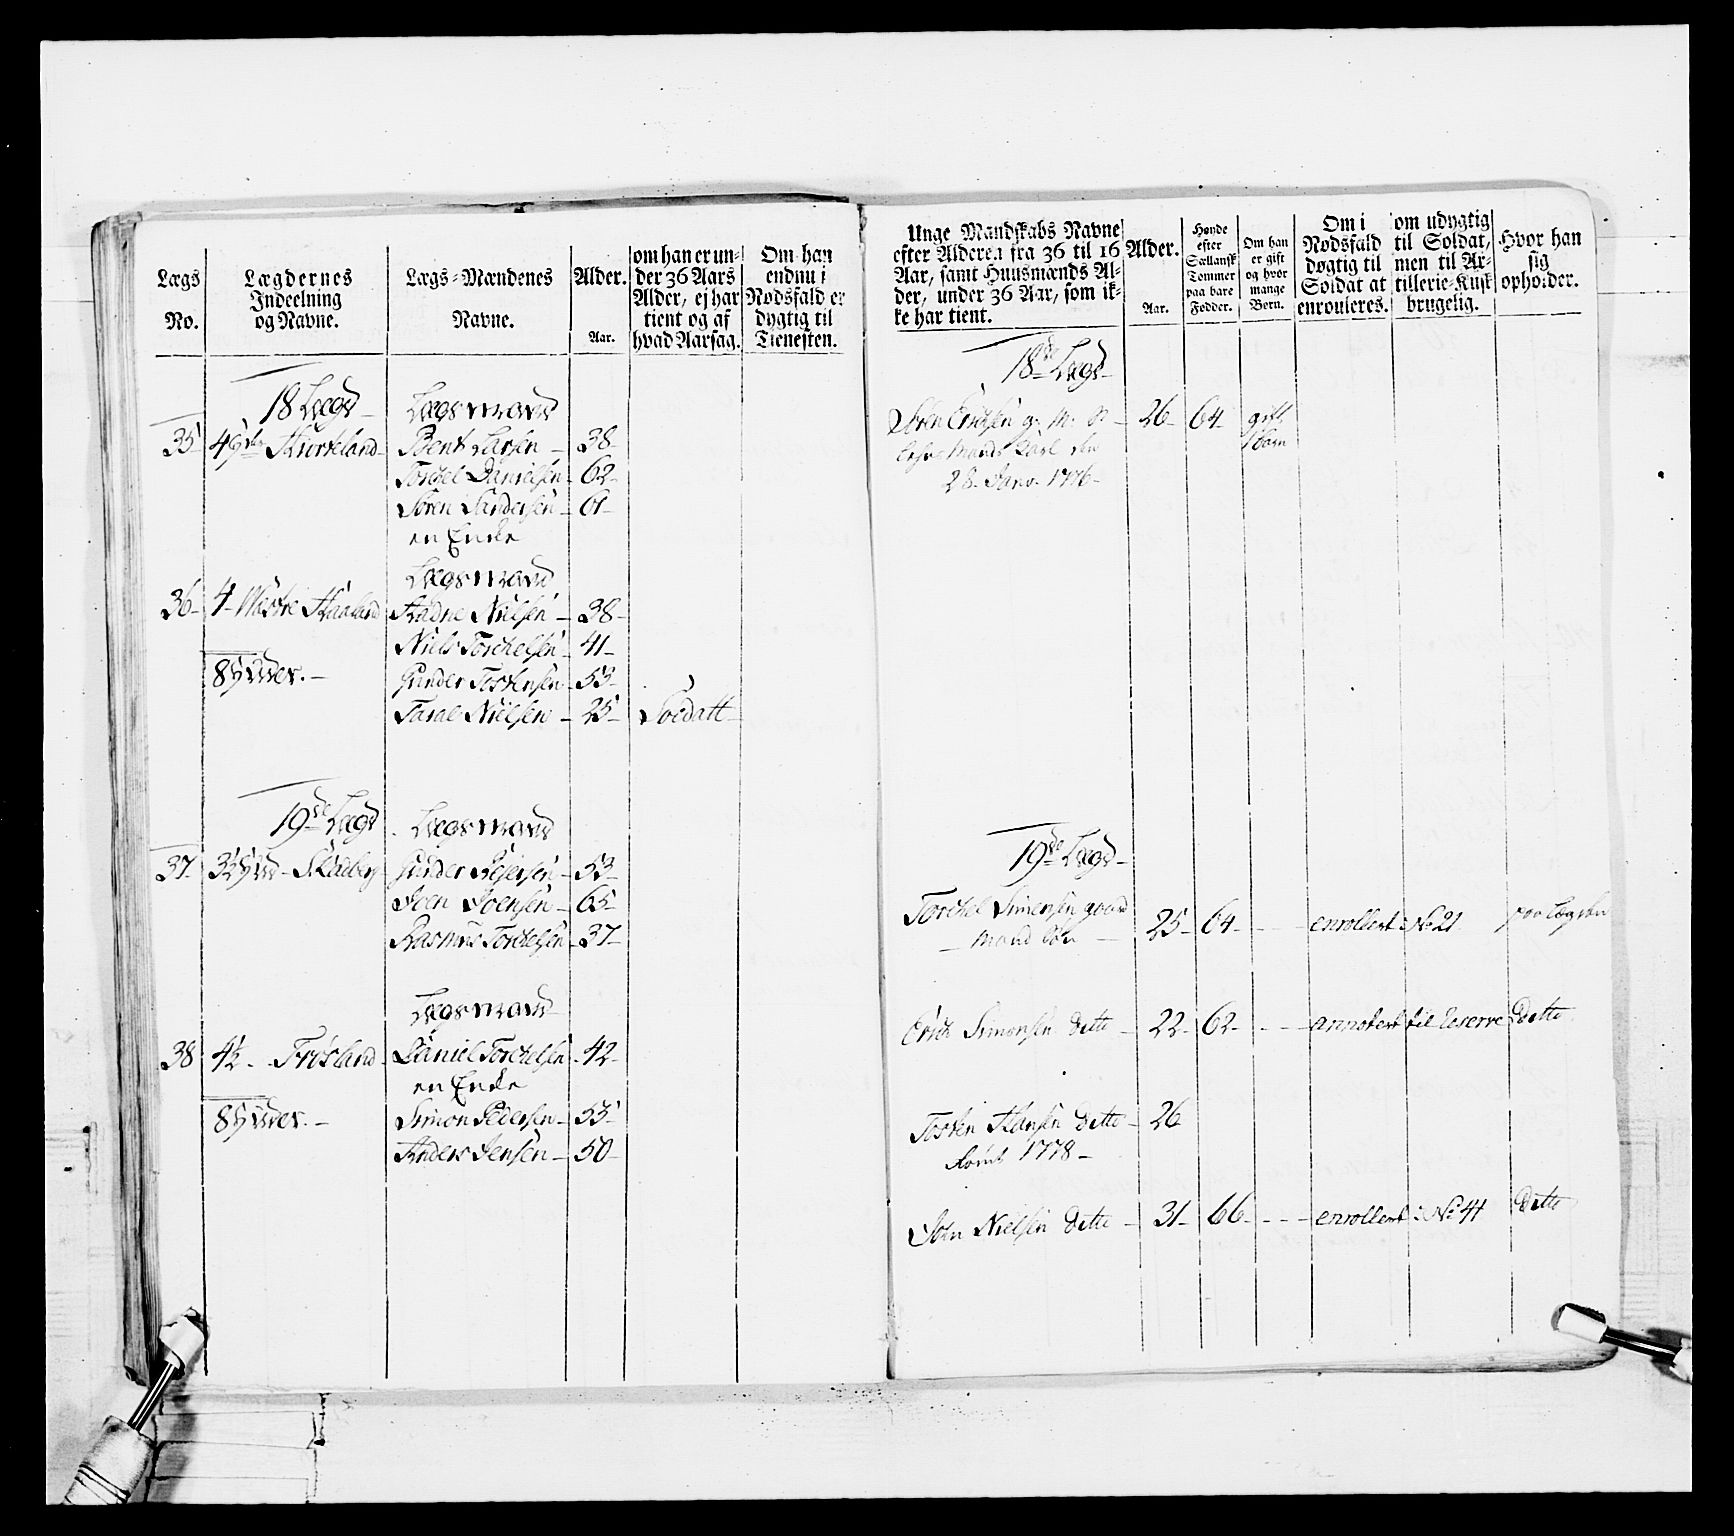 Lægs
No.
Lægdernes
Indeelning
og Navne.
Lægs-Mændenes
Navne.
Alder.
Aar.
om han er un-
der 36 Aars
Alder, ej har
tient og af
hvad Aarsag.
Om han
endnu i
Nødsfald er
dygtig til
Tienesten.
18 Lægd
Lægsmand
35 Bent Larsen - 38
Torckel Danielsen 62
Søren Sandersen - 61
en Ende
Lægsmand
36 4 Westre Nielsen - 38
Niels Torckelsen - 41
8 Gunder Tostensen - 53
Taral Nielsen - 25 Soldatt
19de Lægd
Lægsmand
37 3½ Gunder - 53
Joen Joensen - 65
Rasmus Torckelsen 37
Lægsmand
38 4½ Daniel Torckelsen 42
en Ende
8 Simon Pedersen - 55
Anders Jensen - 50
Unge Mandskabs Navne
efter Alderen fra 36 til 16
Aar, samt Huusmænds Al-
der, under 36 Aar, som ik-
ke har tient.
Alder.
Aar.
Høyde
efter
Sællansk
Tommer
paa bare
Fødder.
Om han
er gift
og hvor
mange
Bern.
Om i
Nødsfald
døgtig til
Soldat at
enroulleres.
om udygtig
til Soldat,
men til Ar-
tillerie-Kusk
brugelig.
Hvor han
sig
opholder.
18de Lægd
Søren Ericksen g. M. S - 26 64 gift
1 barn
28 Janv. 1776
19de Lægd
Torckel Simensen gaard
mand Søn 25 64 - - enrollert No 21 paa Lægden
Erich Simonsen ditto - 22 62 - - annotert til Reserve Ditto
Tosten Hansen ditto - 26
1778
John Nielsen ditto - 31 66 - - enrollert No 41 Ditto